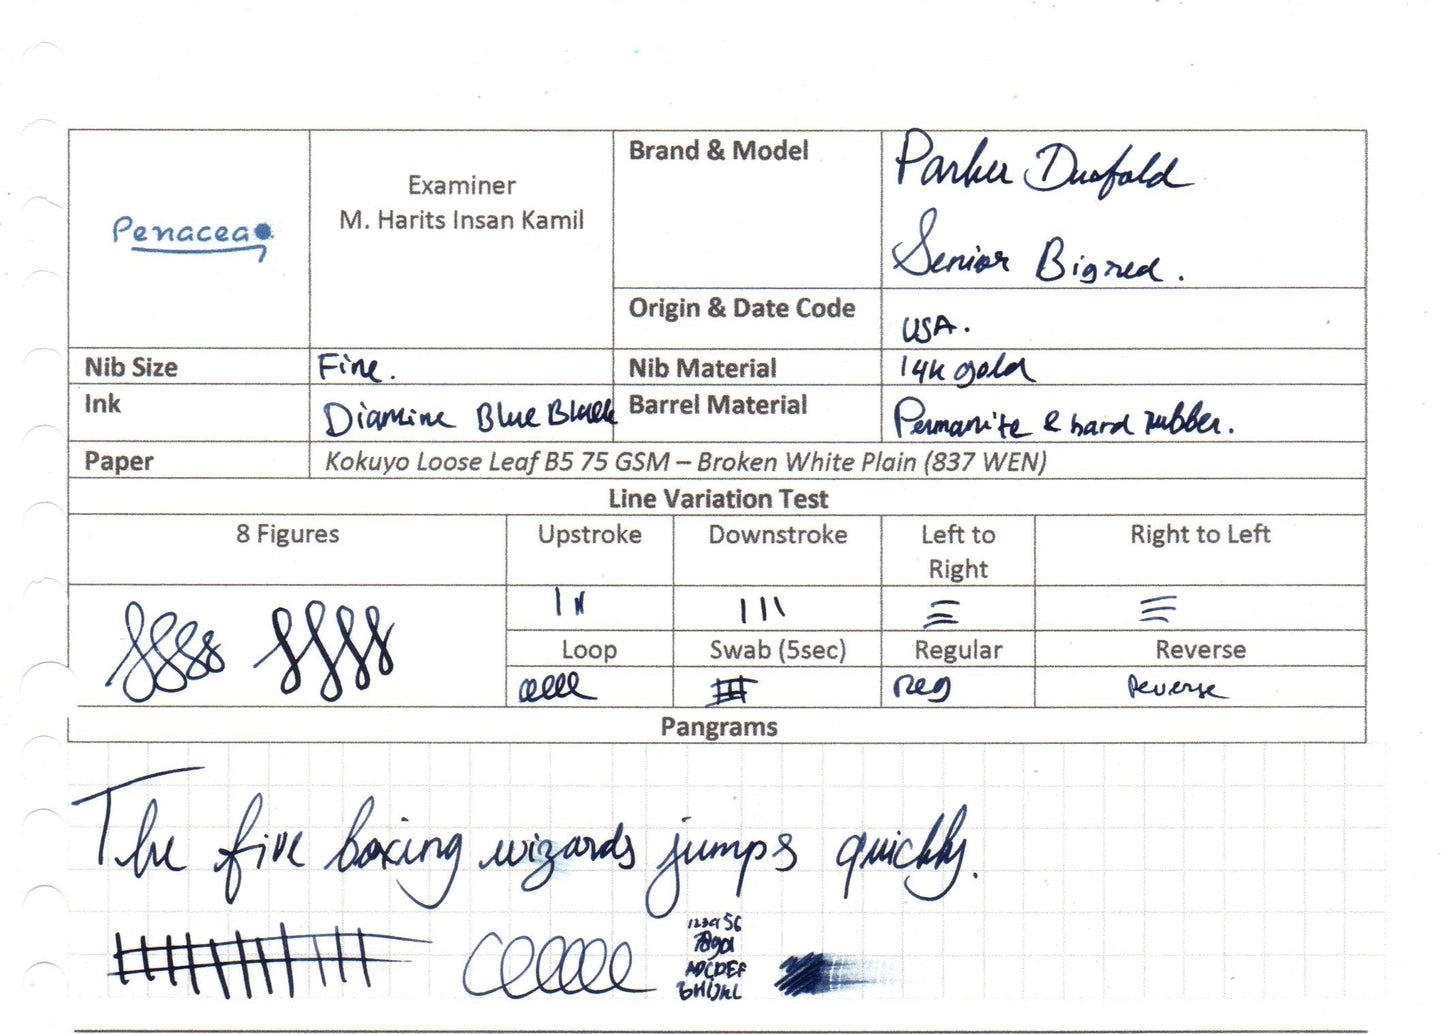 Penacea
Examiner
M. Harits Insan Kamil
Brand & Model
Parker Duofold
Senior Bigred.
Origin & Date Code
USA.
Nib Size
Fine.
Nib Material
14k gold
Ink
Diamine Blue Black
Barrel Material
Permanite & hard rubber.
Paper
Kokuyo Loose Leaf B5 75 GSM – Broken White Plain (837 WEN)
Line Variation Test
8 Figures
Upstroke
Downstroke
Left to
Right
Right to Left
Loop
Swab (5sec)
Regular
Reverse
Reg
Reverse
Pangrams
The five boxing wizards jumps quickly.
123456
ABCDEF
GHIJKL